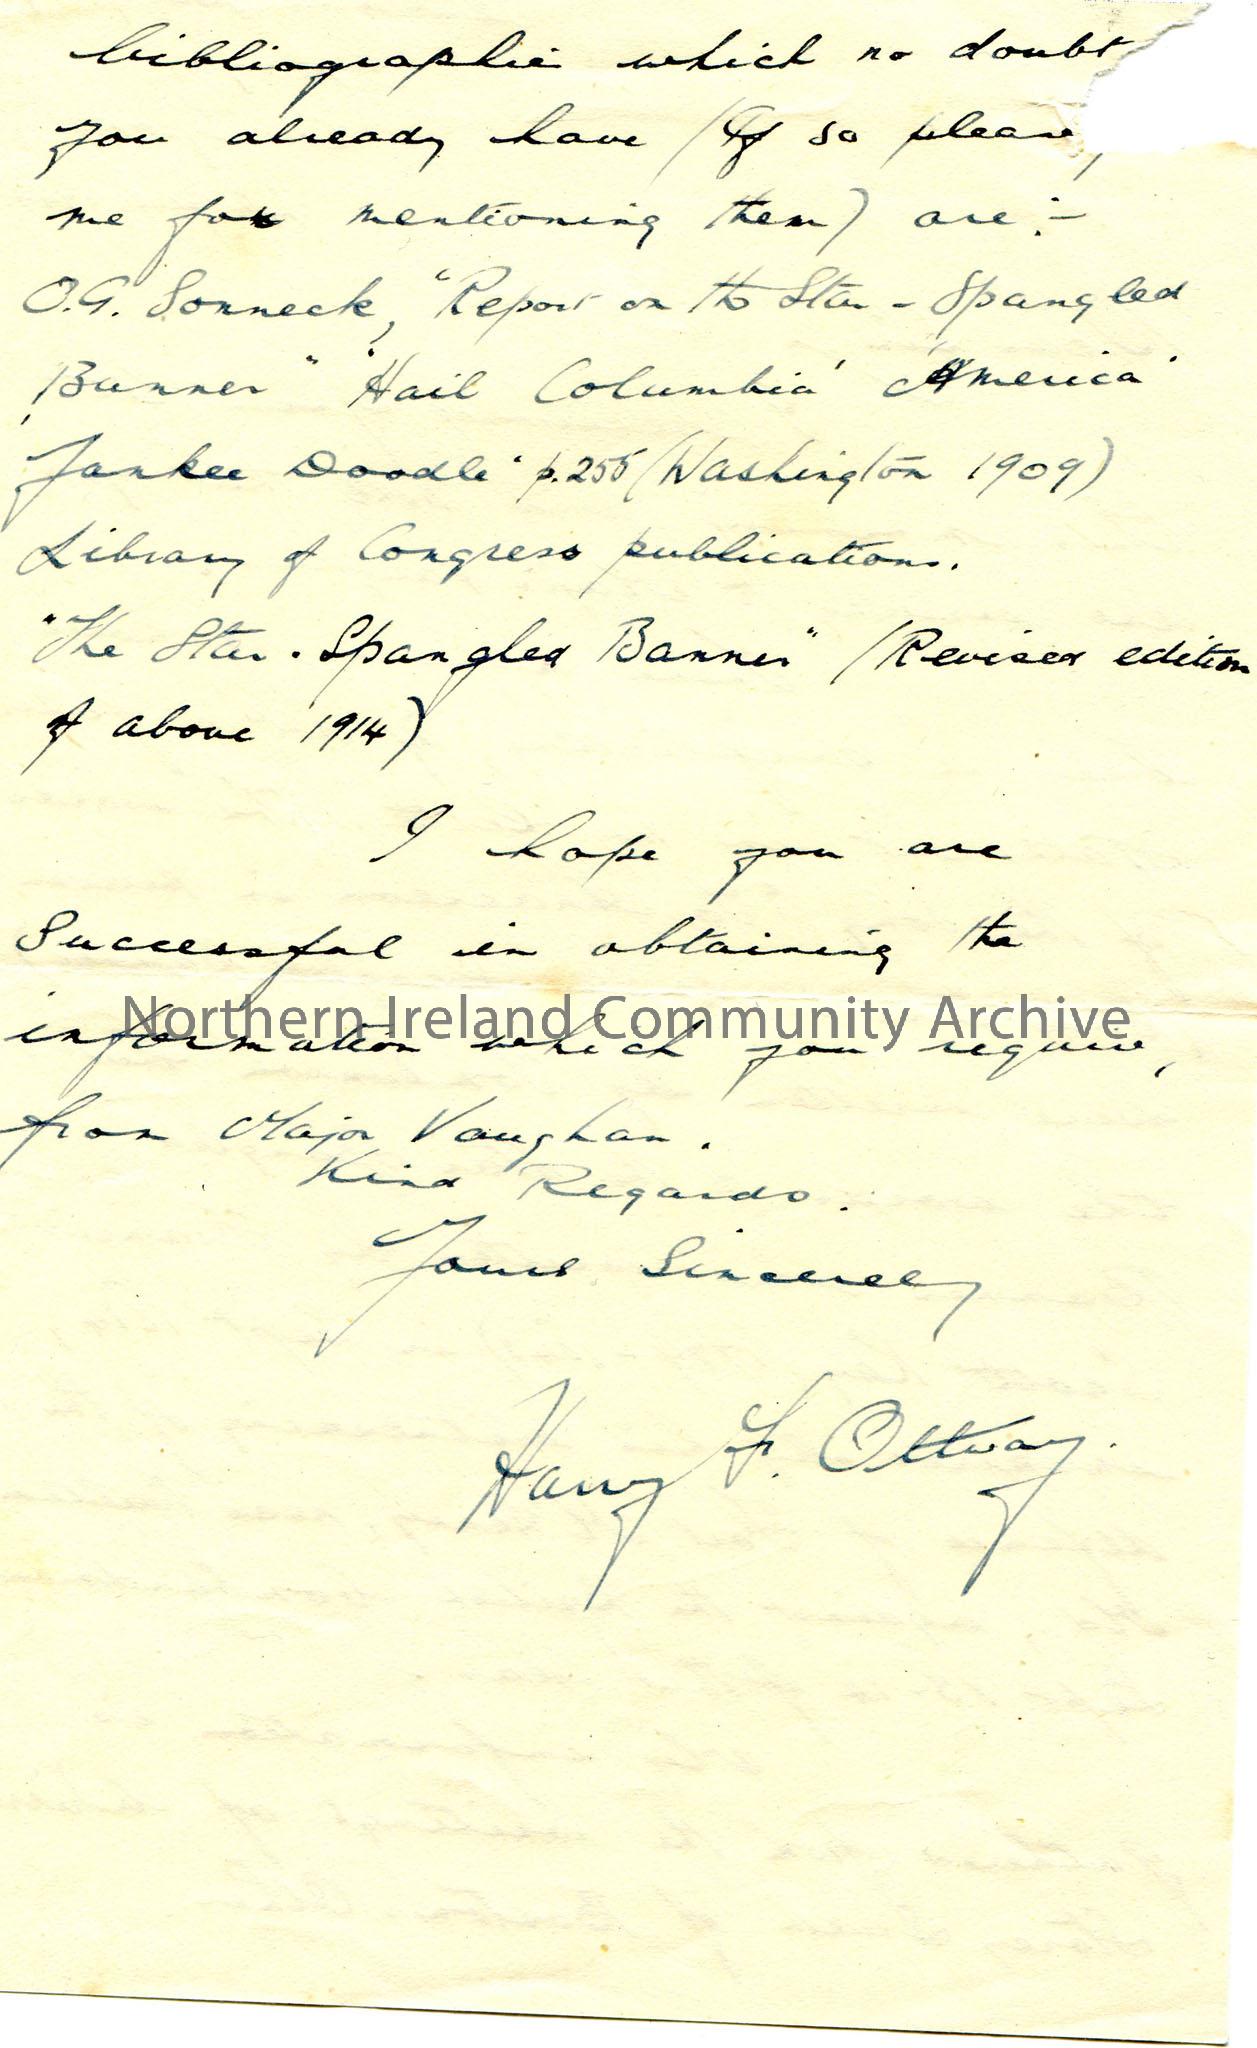 bibliographie which no doubt
you already have (If so please
me for mentioning them) are :-
O.G. Sonneck, "Report on the Star - Spangled
Banner" "Hail Columbia' 'America'
'Yankee Doodle" p.255 (Washington 1909)
Library of Congress publications.
"The Star - Spangled Banner" (Revised edition
of above 1914)
I hope you are
Successful in obtaining the
Northern Ireland Community Archive
information which you require,
from Major Vaughan.
Kind Regards.
Yours Sincerely
Harry F. Ottway.